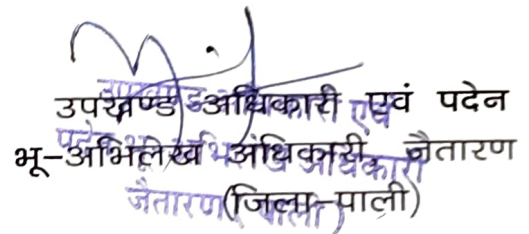 उपखण्ड अधिकारी एवं पदेन
भू-अभिलेख अधिकारी जैतारण
(जिला-पाली)
उपखण्ड अधिकारी एवं
पदेन भू अभिलेख अधिकारी
जैतारण (पाली)